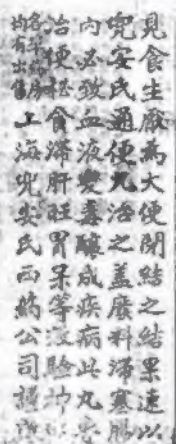 見食生厭為大便閉結之結果速以
兜安氏通便丸治之蓋廢料滯塞腸
內必致血液變毒釀成疾病此丸
治便秘食滯肝旺胃呆等
各 均有出售
上海兜安氏西藥公司謹